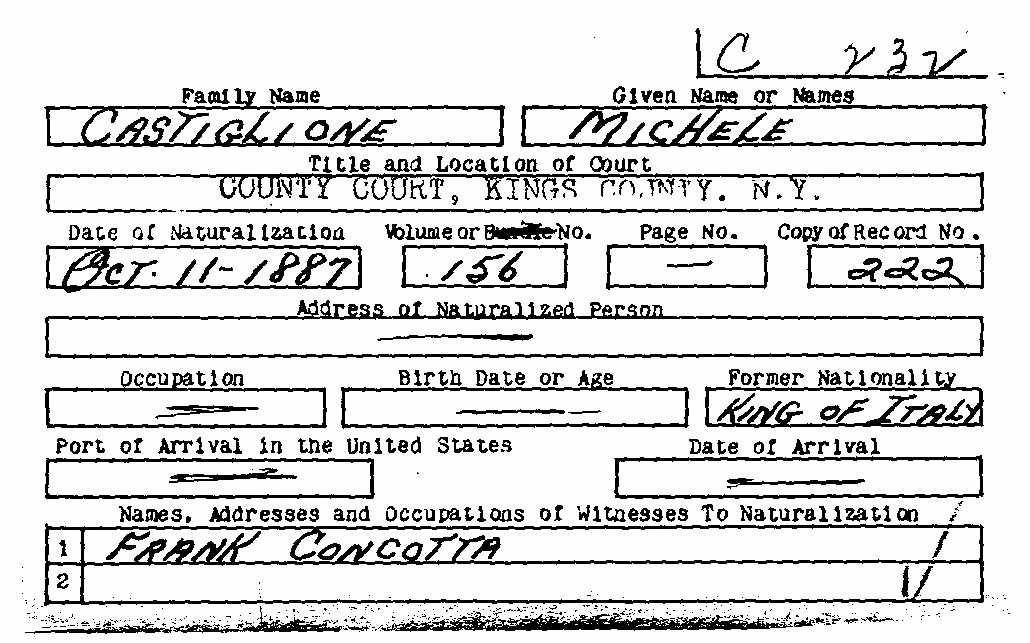 C 232
Family Name Given Name or Names
CASTIGLIONE MICHELE
Title and Location of Court
COUNTY COURT, KINGS COUNTY. N.Y.
Date of Naturalization Volume or Bundle No. Page No. Copy of Record No.
OCT. 11-1887 156 — 222
Address of Naturalized Person
—
Occupation Birth Date or Age Former Nationality
— — KING OF ITALY
Port of Arrival in the United States Date of Arrival
— —
Names, Addresses and Occupations of Witnesses To Naturalization
1 FRANK CONCOTTA
2